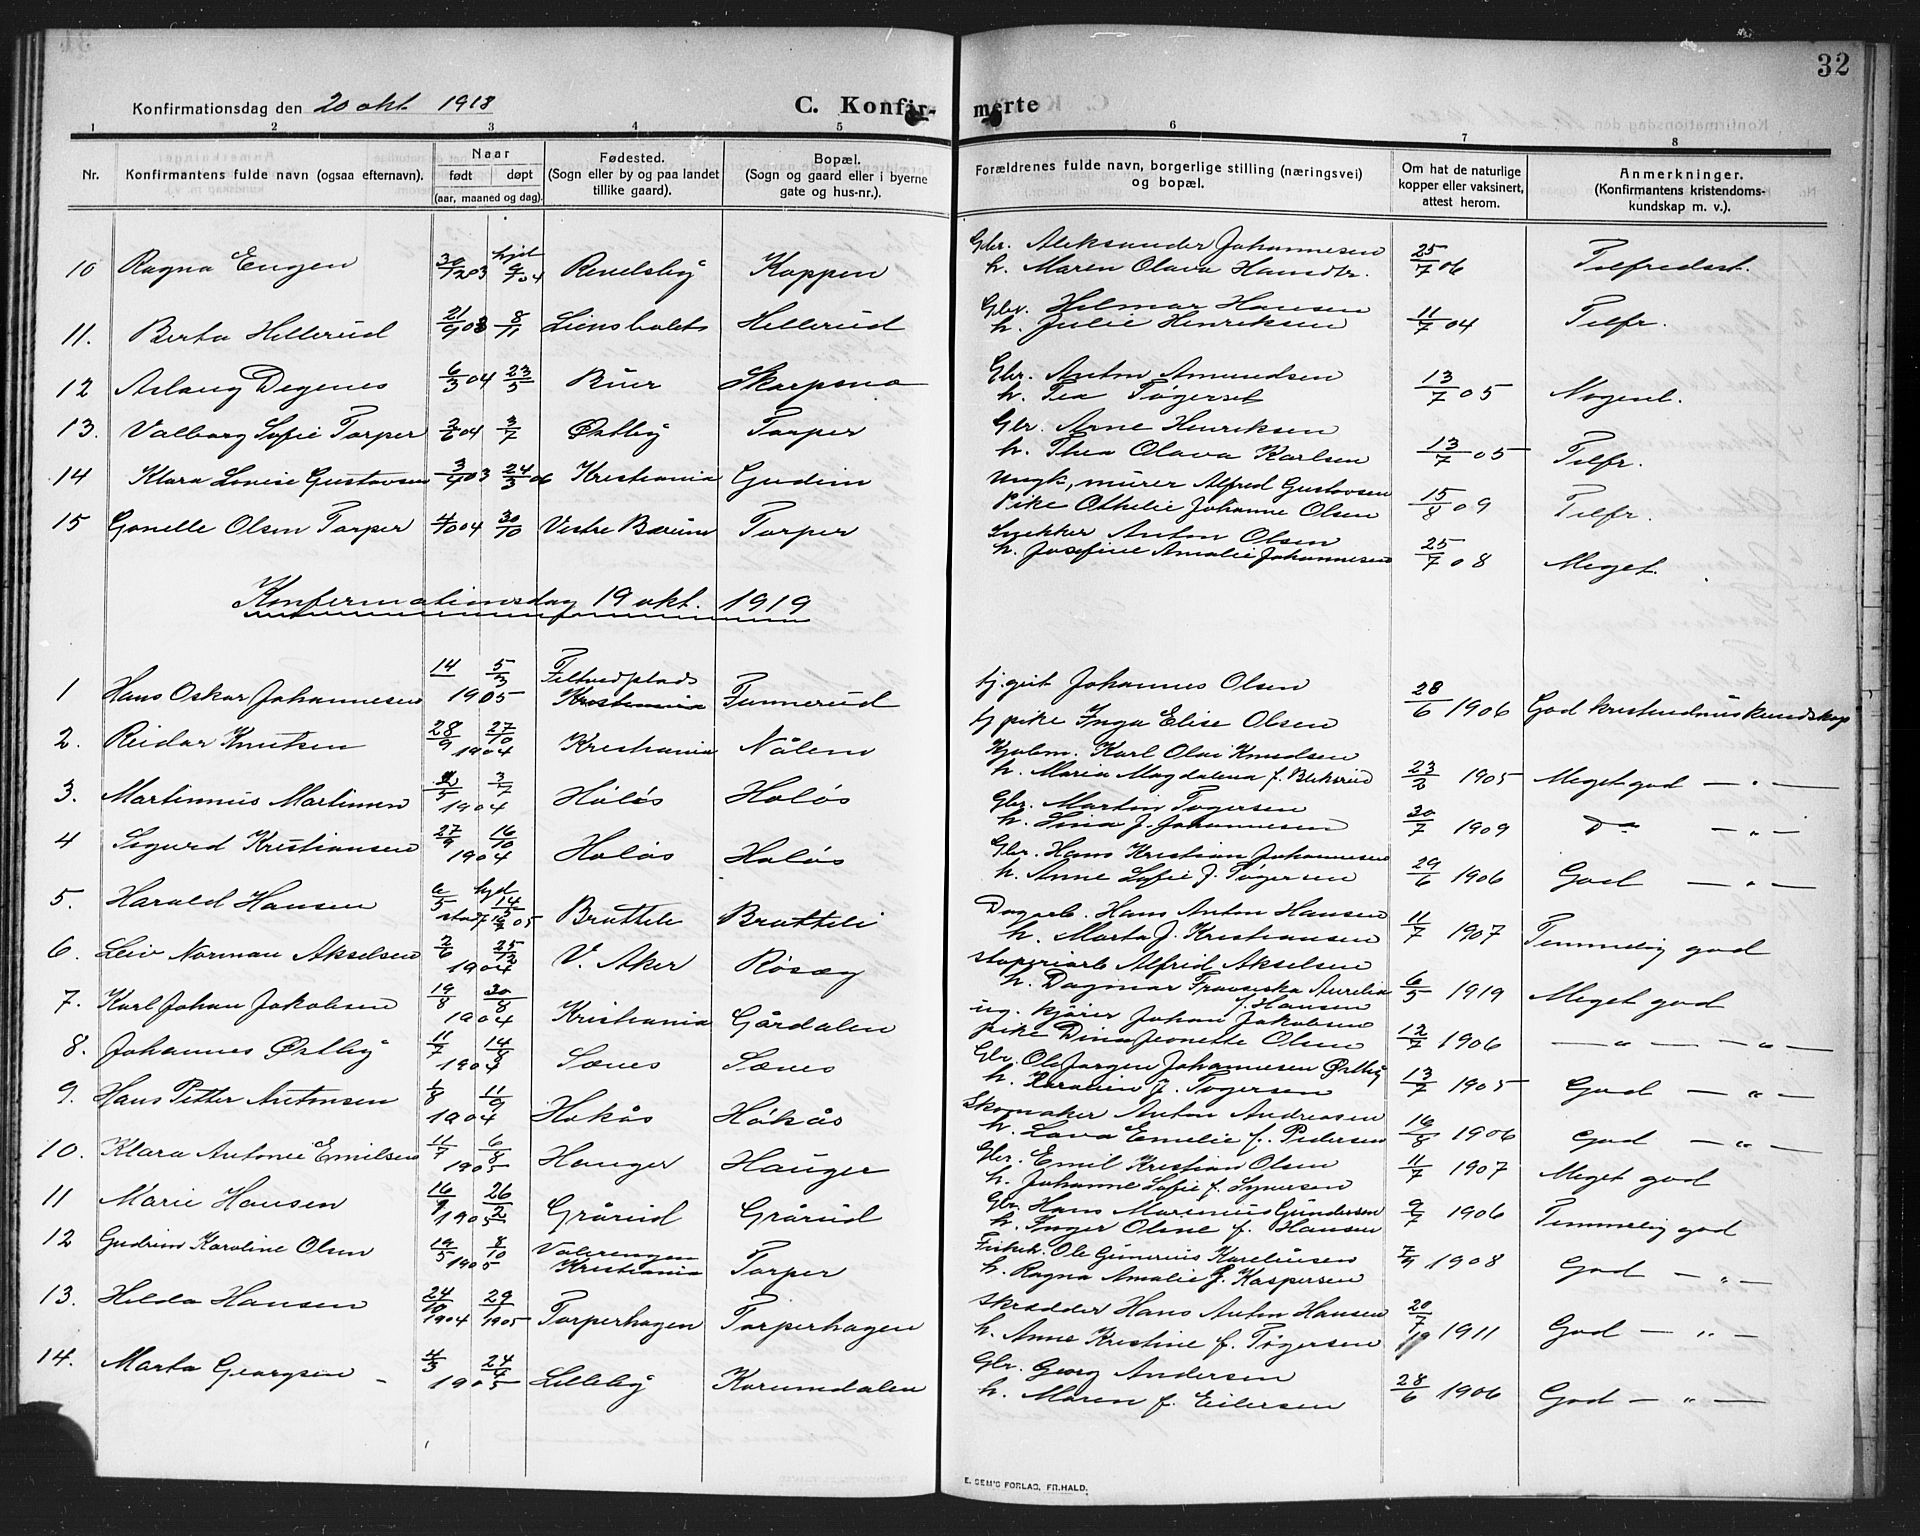 32
Konfirmationsdag den 20 okt. 1918
C. Konfir-merte
1 2 3 4 5 6 7 8
Nr.
Konfirmantens fulde navn (ogsaa efternavn).
Naar
født døpt
(aar, maaned og dag).
Fødested.
(Sogn eller by og paa landet
tillike gaard).
Bopæl.
(Sogn og gaard eller i byerne
gate og hus-nr.).
Forældrenes fulde navn, borgerlige stilling (næringsvei)
og bopæl.
Om hat de naturlige
kopper eller vaksinert,
attest herom.
Anmerkninger.
(Konfirmantens kristendoms-
kundskap m. v.).
10 Ragna Engen 30/12 03 hjd 9/7 04 Revelsby Koppen Gbr. Aleksander Johannesen
h. Maren Olava Hansdtr. 25/7 06 Tilfredsst.
11. Berta Hillerud 21/9 03 8/11 Lionsholet Hillerud Gbr. Hilmar Hansen
h. Julie Henriksen 11/7 04 Tilfr.
12 Aslaug Degenes 6/3 04 23/5 Buer Skarpsno Gbr. Anton Amundsen
h. Tea Tøgerset 13/7 05 Nogenl.
13. Valborg Sofie Torper 2/6 04 3/7 Østby Torper Gbr. Arne Henriksen
h. Thea Olava Karlsen 13/7 05 Tilfr.
14 Klara Lovise Gustavsen 3/9 03 24/3 06 Kristiania Gudim Ungk., murer Alfred Gustavsen
Pike Othelie Johanne Olsen 15/8 09 Tilfr.
15 Gonelle Olsen Torper 4/10 04 30/10 Vestre Bærum Torper Snekker Anton Olsen
h. Josefine Amalie Johannesen 25/7 08 Meget.
Konfirmationsdag 19 okt. 1919
1 Hans Oskar Johannesen 14 5/3 1905 Filtvedplads Kristiania Tunnerud tj. gut Johannes Olsen
tj pike Inga Elise Olsen 28/6 1906 God kristendomskundskap
2. Reidar Knutsen 28/9 27/10 1904 Kristiania Nålem Kjølem. Karl Olai Knudsen
h. Maria Magdalena f. Bliksrud 23/2 1905 Meget god — " —
3. Martinius Martinsen 2/5 3/7 1904 Høløs Holøs Gbr. Martin Tøgersen
h. Lina f. Johannesen 30/7 1909 Do — " —
4 Sigurd Kristiansen 27/9 16/10 1904 Holøs Holøs Gbr. Hans Kristian Johannesen
h. Anne Sofie f. Tøgersen 29/6 1906 God — " —
5. Harald Hansen 6/5 hjd 14/5 stadf. 05 Bråtteli Bråtteli Dagarb. Hans Anton Hansen
h. Marta f. Kristiansen 11/7 1907 Temmelig god
6. Leiv Norman Akselsen 2/6 25/12 1904 V. Aker Røsæg støperiarb Alfred Akselsen
h. Dagmar Fransiska Aurelia
f. Hansen 6/5 1919 Meget god
7. Karl Johan Jakobsen 19/8 30/8 1904 Kristiania Gårdalen ug. kjører Johan Jakobsen
pike Dina Jeonette Olsen 12/7 1906 — " — — " —
8. Johannes Østby 11/7 14/8 1904 Sænes Sænes Gbr. Ole Jørgen Johannesen Østby
h. Karoline f. Tøgersen 13/7 1905 God — " —
9. Hans Petter Antonsen 1/8 11/9 1904 Høkås Høkås Skomaker Anton Andreasen
h. Lava Emelie f. Pedersen 16/8 1906 God — " —
10. Klara Antonie Emilsen 11/7 6/8 1905 Hauger Hauger Gbr. Emil Kristian Olsen
h. Johanne Sofie f. Syversen 11/7 1907 Meget god
11 Marie Hansen 16/9 26/2 1905 Grårud Grårud Gbr. Hans Marinius Gundersen
h. Inger Oline f. Hansen 9/7 1906 Temmelig god
12 Gudrun Karoline Olsen 19/5 8/10 1905 Vålerengen Kristiania Torper Fabrik. Ole Gunerius Kareliusen
h. Ragna Amalie f. Kaspersen 7/9 1908 God — " —
13. Hilda Hansen 24/10 1904 29/1 1905 Torperhagen Torperhagen Skrædder Hans Anton Hansen
h. Anne Kristine f. Tøgersen 20/7 1911 God — " —
14. Marta Georgsen 4/3 24/4 1905 Lilleby Korumdalen Gbr. Georg Andersen
h. Maren f. Eilersen 28/6 1906 God — " —
E. SEM'S FORLAG, FR.HALD.